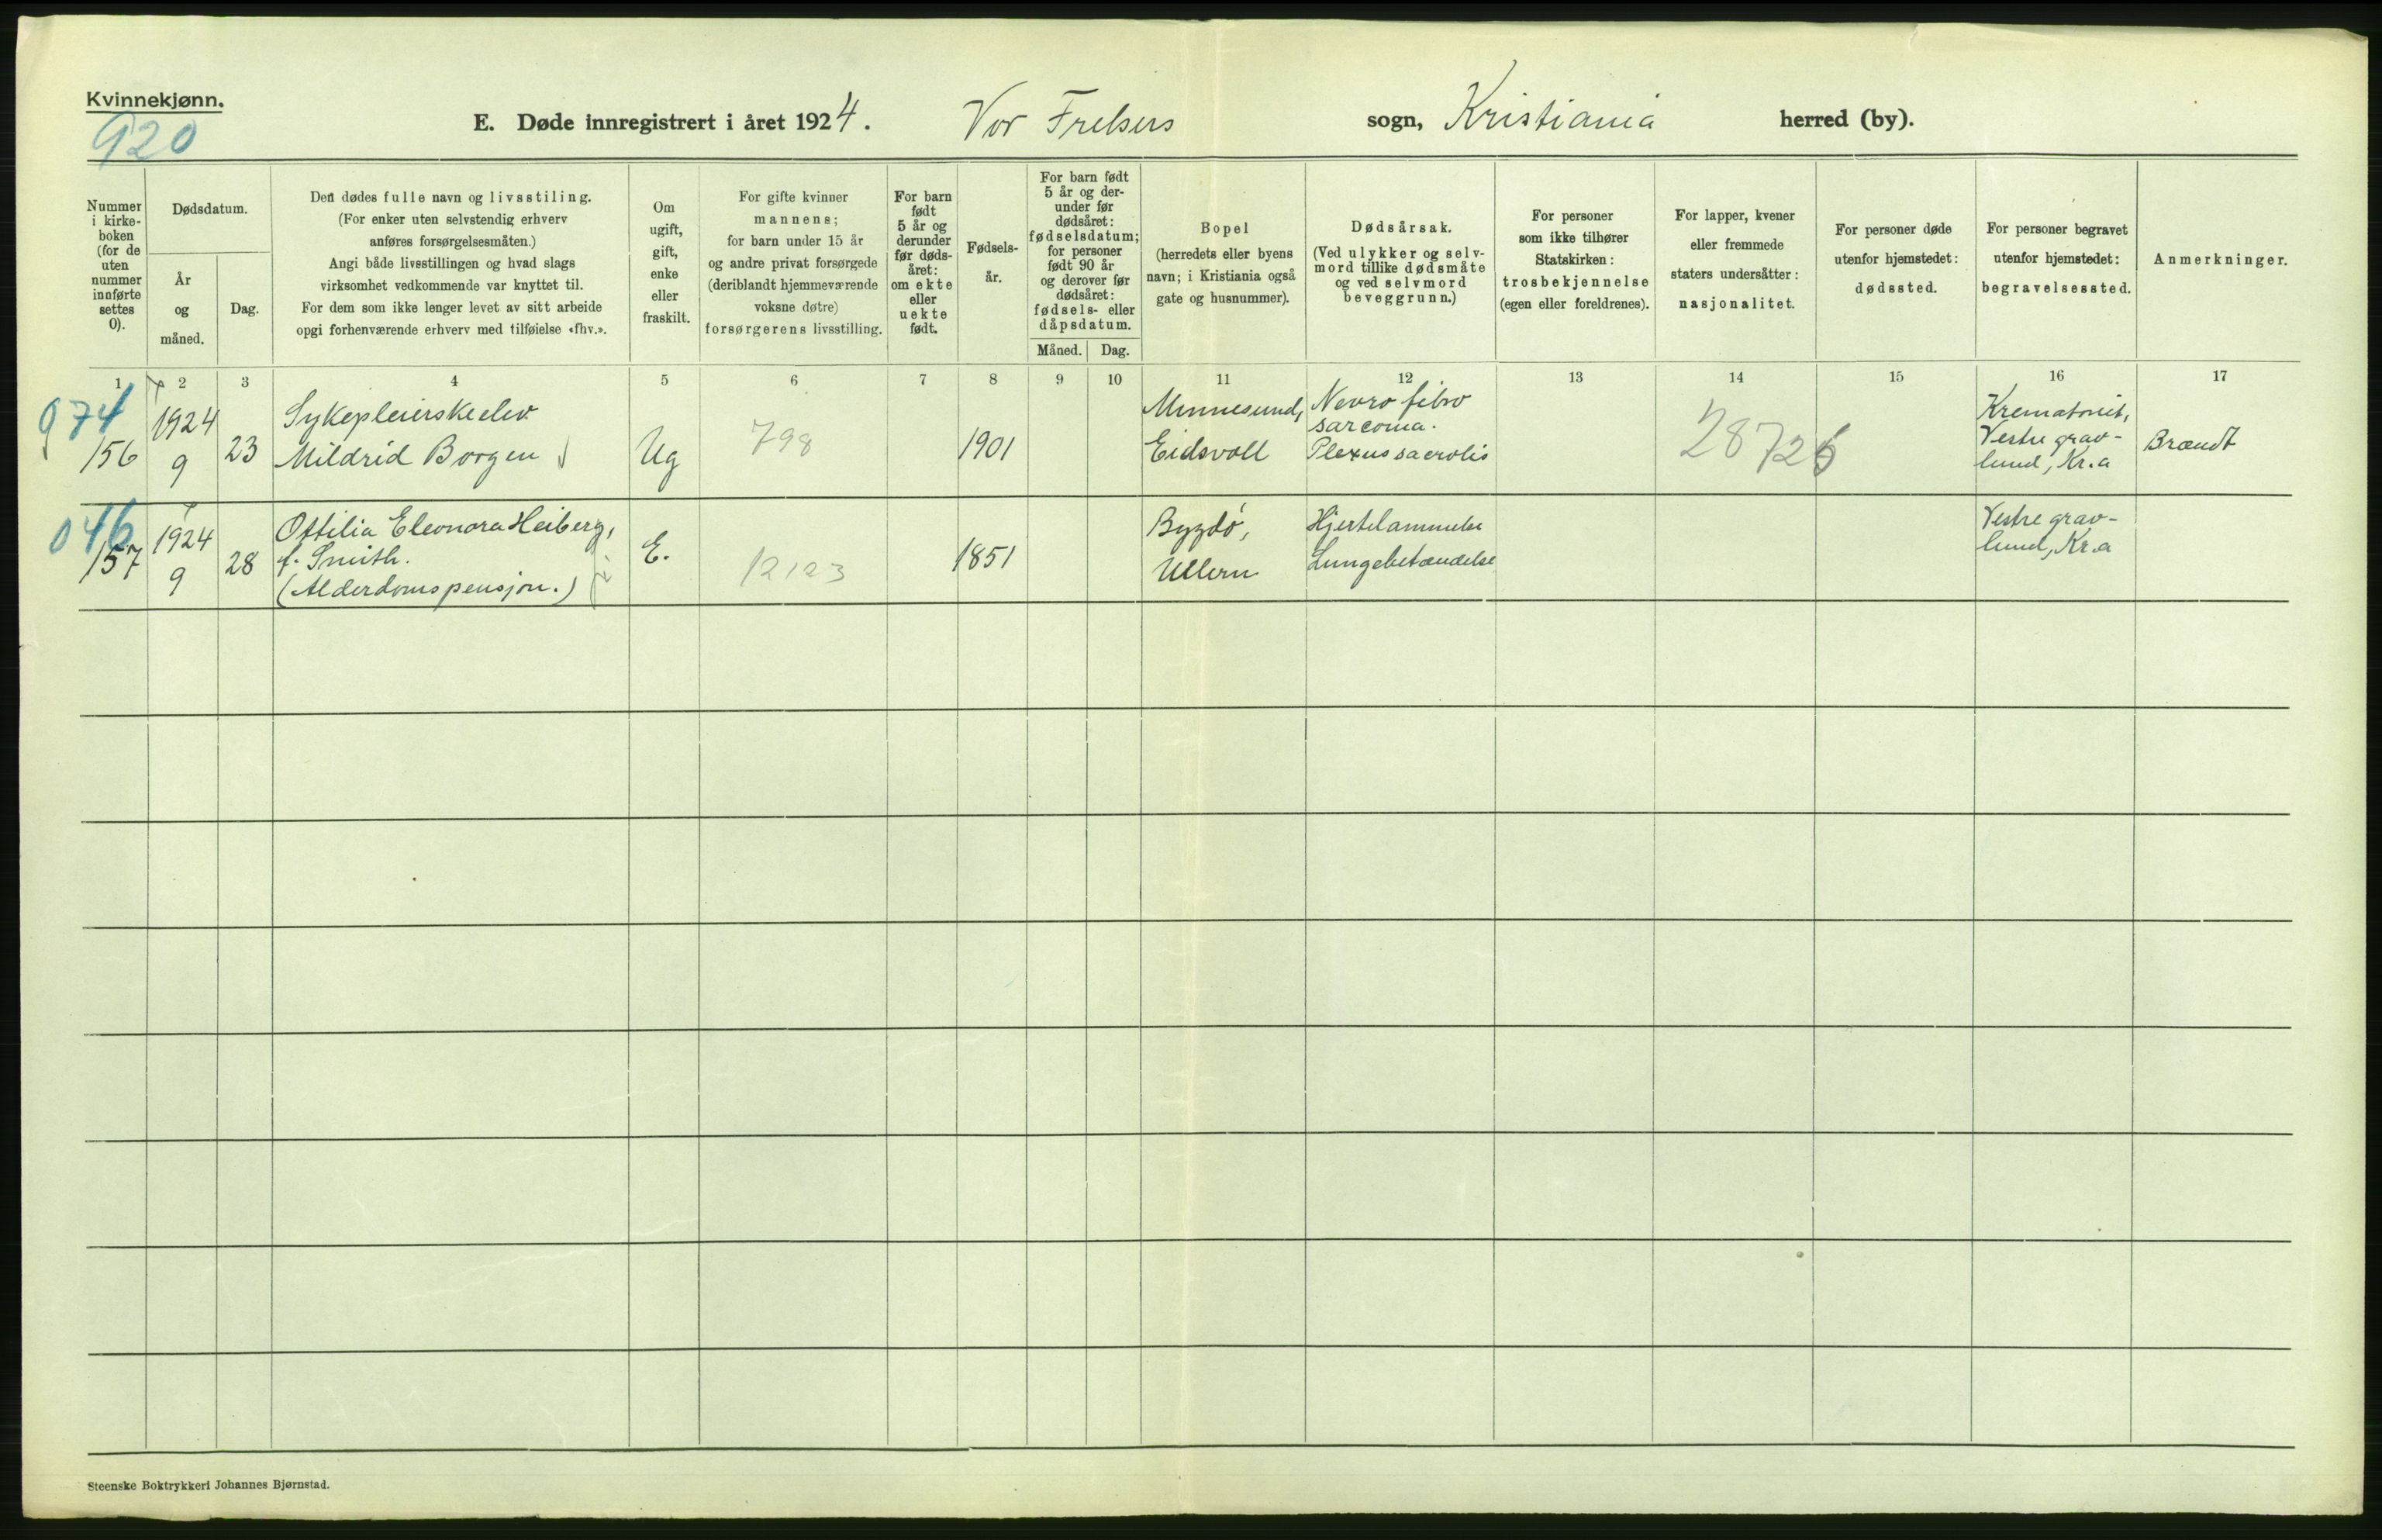 Kvinnekjønn.
920
E. Døde innregistrert i året 1924. Vor Frelsers sogn, Kristiania herred (by).
Nummer i kirke-boken (for de uten nummer innførte settes 0).
Dødsdatum.
År og måned.
Dag.
Den dødes fulle navn og livsstiling.
(For enker uten selvstendig erhverv
anføres forsørgelsesmåten.)
Angi både livsstillingen og hvad slags
virksomhet vedkommende var knyttet til.
For dem som ikke lenger levet av sitt arbeide
opgi forhenværende erhverv med tilføielse «fhv.».
Om ugift, gift, enke eller fraskilt.
For gifte kvinner
mannens;
for barn under 15 år
og andre privat forsørgede
(deriblandt hjemmeværende
voksne døtre)
forsørgerens livsstilling.
For barn født 5 år og derunder før døds-året: om ekte eller uekte født.
Fødsels-år.
For barn født
5 år og der-
under før
dødsåret:
fødselsdatum;
for personer
født 90 år
og derover før
dødsåret:
fødsels- eller
dåpsdatum.
Måned. Dag.
Bopel
(herredets eller byens
navn; i Kristiania også
gate og husnummer).
Dødsårsak.
(Ved ulykker og selv-
mord tillike dødsmåte
og ved selvmord
beveggrunn.)
For personer
som ikke tilhører
Statskirken:
trosbekjennelse
(egen eller foreldrenes).
For lapper, kvener
eller fremmede
staters undersåtter:
nasjonalitet.
For personer døde
utenfor hjemstedet:
dødssted.
For personer begravet
utenfor hjemstedet:
begravelsessted.
Anmerkninger.
1 2 3 4 5 6 7 8 9 10 11 12 13 14 15 16 17
974
156
1924
9
23
Sykepleierskeelev
Mildrid Borgen
Ug
798
1901
Minnesund,
Eidsvoll
Nevro fibro
sarcoma.
Plexus sacrolis
28726
Krematoriet,
Vestre grav-
lund, Kr.a
Brandt
046
157
1924
9
28
Ottilia Eleonora Heiberg,
f. Smith.
(Alderdomspensjon.)
E.
12123
1851
Bygdö,
Ullern
Hjertelammelse
Lungebetændelse
Vestre grav-
lund, Kr.a
Steenske Boktrykkeri Johannes Bjørnstad.